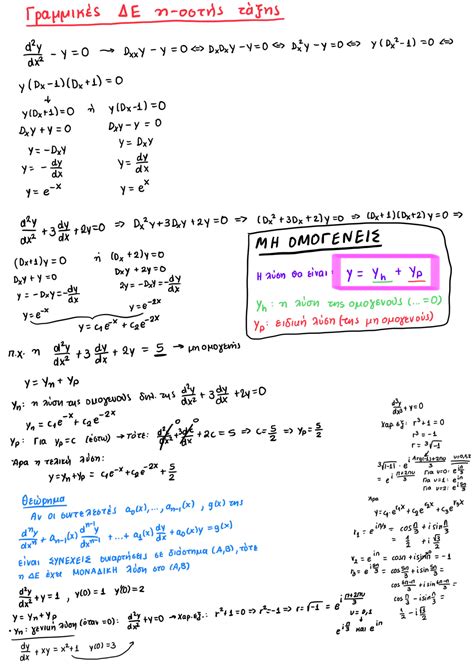 Γραμμικές ΔΕ η-οστής τάξης
d²y/dx² - y = 0 → Dxxy - y = 0 ⇔ DxDxy - y = 0 ⇔ Dx²y - y = 0 ⇔ y(Dx² - 1) = 0 ⇔
y(Dx-1)(Dx+1) = 0
y(Dx+1) = 0 ή y(Dx-1) = 0
Dxy + y = 0 Dxy - y = 0
y = -Dxy y = Dxy
y = - dy/dx y = dy/dx
y = e^-x y = e^x
d²y/dx² + 3 dy/dx + 2y = 0 ⇒ Dx²y + 3Dxy + 2y = 0 ⇒ (Dx² + 3Dx + 2)y = 0 ⇒ (Dx+1)(Dx+2)y = 0 ⇒
(Dx+1)y = 0 ή (Dx+2)y = 0
Dxy + y = 0 Dxy + 2y = 0
y = -Dxy = - dy/dx 2y = -Dxy = - dy/dx
y = e^-x y = e^-2x
y = c₁e^-x + c₂e^-2x
ΜΗ ΟΜΟΓΕΝΕΙΣ
Η λύση θα είναι y = yh + yp
yh: η λύση της ομογενούς (... = 0)
yp: ειδική λύση (της μη ομογενούς)
π.χ. η d²y/dx² + 3 dy/dx + 2y = 5 → μη ομογενής
y = yh + yp
yh: η λύση της ομογενούς δηλ. της d²y/dx² + 3 dy/dx + 2y = 0
yh = c₁e^-x + c₂e^-2x
yp: Για yp = c (έστω) → τότε: d²c/dx² + 3 dc/dx + 2c = 5 ⇒ c = 5/2 ⇒ yp = 5/2
Άρα η τελική λύση:
y = yh + yp = c₁e^-x + c₂e^-2x + 5/2
Θεώρημα
Αν οι συντελεστές a₀(x), ..., aₙ₋₁(x), g(x) της
dⁿy/dxⁿ + aₙ₋₁(x) dⁿ⁻¹y/dxⁿ⁻¹ + ... + a₁(x) dy/dx + a₀(x)y = g(x)
είναι ΣΥΝΕΧΕΙΣ συναρτήσεις σε διάστημα (Α,Β), τότε
η ΔΕ έχει ΜΟΝΑΔΙΚΗ λύση στο (Α,Β)
d²y/dx² + y = 1, y(0) = 1 y'(0) = 2
y = yh + yp
• yh: γενική λύση (όταν = 0): d²y/dx² + y = 0 → χαρ.εξ.: r² + 1 = 0 ⇒ r² = -1 ⇒ r = √-1 =
dy/dx + xy = x² + 1 y(0) = 3
+ y = 0
χαρ.εξ: r³ + 1 = 0
r³ = -1
r = ³√-1
Άρα
y = c₁·e^r₁x + c₂e^r₂x + c₃e^r₃x